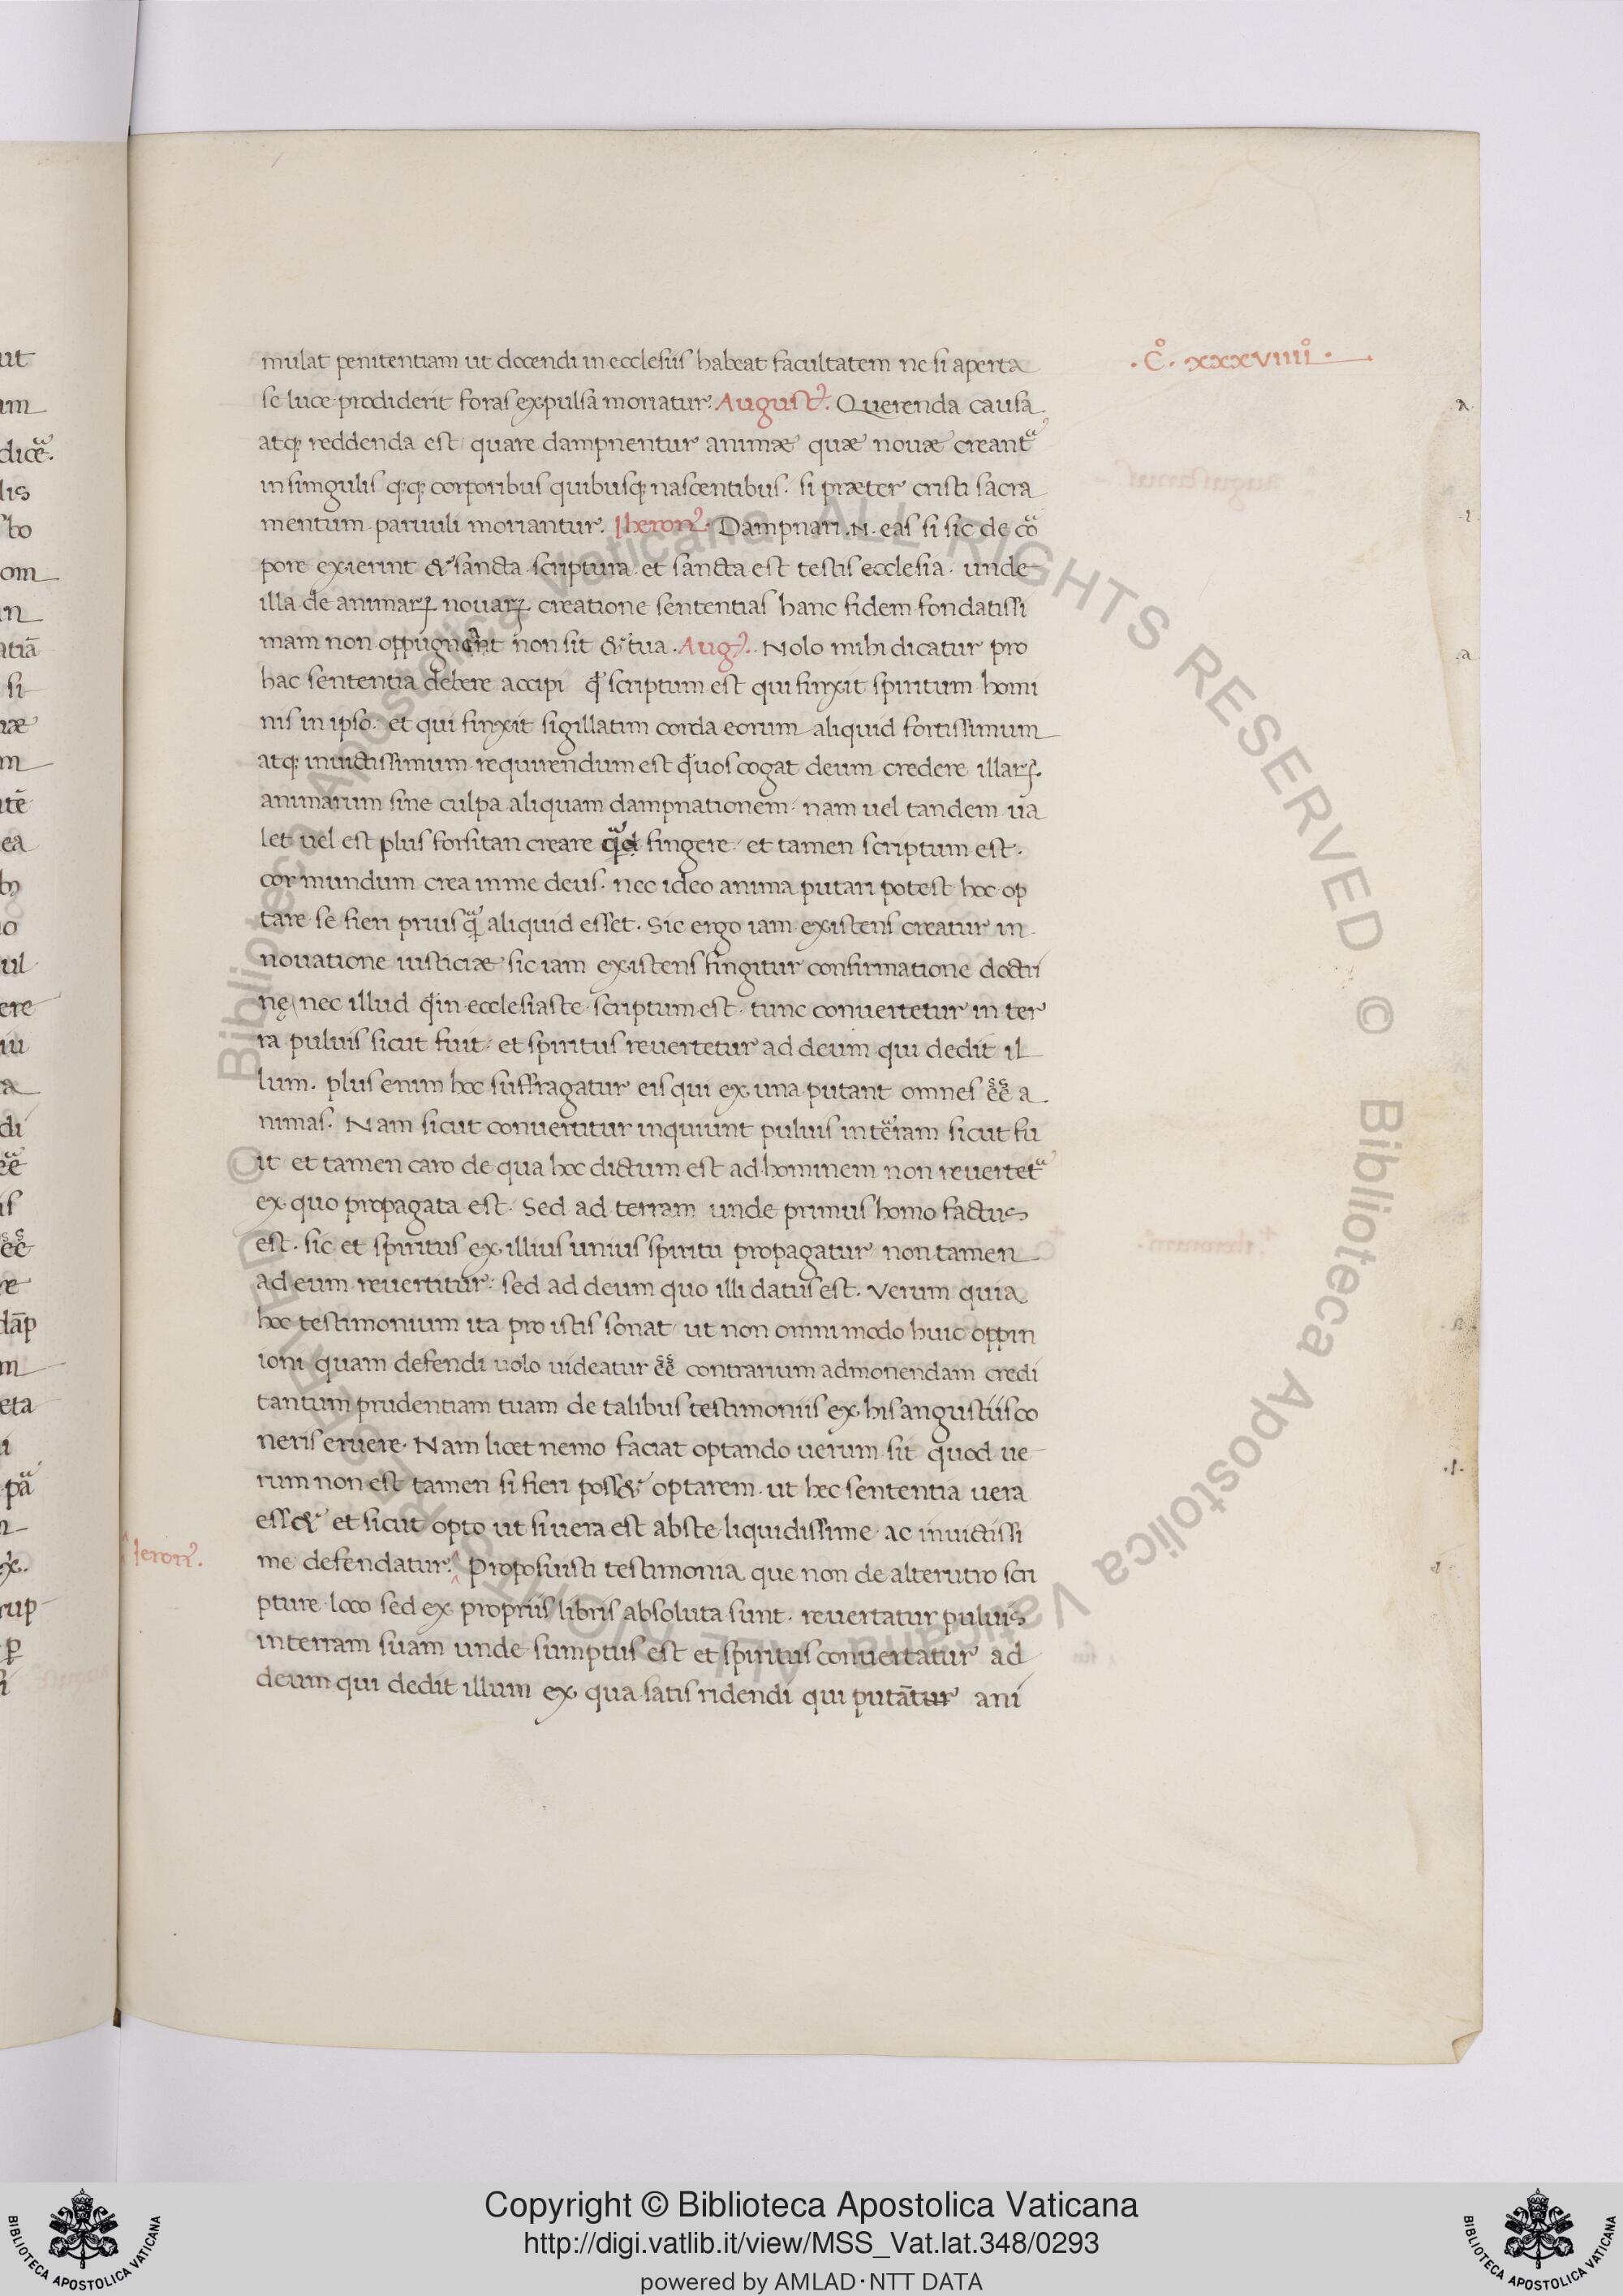 ·C̊· xxxviiii̊·
mulat penitentiam ut docendi in ecclesiis habeat facultatem ne si aperta
se luce prodiderit foras expulsa moriatur. August⁹. Querenda causa
atq; reddenda est quare dampnentur animæ quæ nouæ creant᷑
in simgulis q;q; corporibus quibusq; nascentibus. si præter cristi sacra
mentum paruuli moriantur. Iheron⁹. Dampnari .N. eas si sic de co᷑
pore exierint & sancta scriptura et sancta est testis ecclesia. unde
illa de animaꝝ nouaꝝ creatione sententias hanc fidem fondatissi
mam non oppugnant non sit & tua. Aug⁹. Nolo mihi dicatur pro
hac sententia debere accipi qđ scriptum est qui finxit spiritum homi
nis in ipso. et qui finxit sigillatim corda eorum aliquid fortissimum
atq; inuictissimum requirendum est q᷑ nos cogat deum credere illaꝝ.
animarum sine culpa aliquam dampnationem. nam uel tandem ua
let uel est plus forsitan creare qᷓ fingere. et tamen scriptum est.
cor mundum crea in me deus. nec ideo anima putari potest hoc op
tare se fieri priusqᷓ aliquid esset. Sic ergo iam existens creatur in
nouatione iusticiæ sic iam existens fingitur confirmatione doctri
nę nec illud q᷑ in ecclesiaste scriptum est. tunc conuertetur in ter
ra puluis sicut fuit. et spiritus reuertetur ad deum qui dedit il
lum. plus enim hoc suffragatur eis qui ex una putant omnes ẽẽ a
nimas. Nam sicut conuertitur inquiunt puluis in te᷑ram sicut fu
it et tamen caro de qua hoc dictum est ad hominem non reuertet᷑
ex quo propagata est. Sed ad terram unde primus homo factus
est. sic et spiritus ex illius unius spiritu propagatur non tamen
ad eum reuertitur. sed ad deum quo illi datus est. Verum quia
hoc testimonium ita pro istis sonat ut non omni modo huic oppin
ioni quam defendi uolo uideatur ẽẽ contrarium admonendam credi
tantum prudentiam tuam de talibus testimoniis ex his angustiis co
neris eruere. Nam licet nemo faciat optando uerum sit quod ue
rum non est tamen si fieri poss& optarem. ut hec sententia uera
ess& et sicut opto ut si uera est abs te liquidissime ac inuictissi
Ieron⁹.
me defendatur. Proposuisti testimonia que non de alterutro scri
pture loco sed ex propriis libris absoluta sunt. reuertatur puluis
in terram suam unde sumptus est et spiritus conuertatur ad
deum qui dedit illum ex qua satis ridendi qui putāt ani
© Biblioteca Apostolica Vaticana ALL RIGHTS RESERVED © Biblioteca Apostolica Vaticana ALL RIGHTS RESERVED
BIBLIOTECA APOSTOLICA VATICANA
Copyright © Biblioteca Apostolica Vaticana
http://digi.vatlib.it/view/MSS_Vat.lat.348/0293
powered by AMLAD·NTT DATA
BIBLIOTECA APOSTOLICA VATICANA